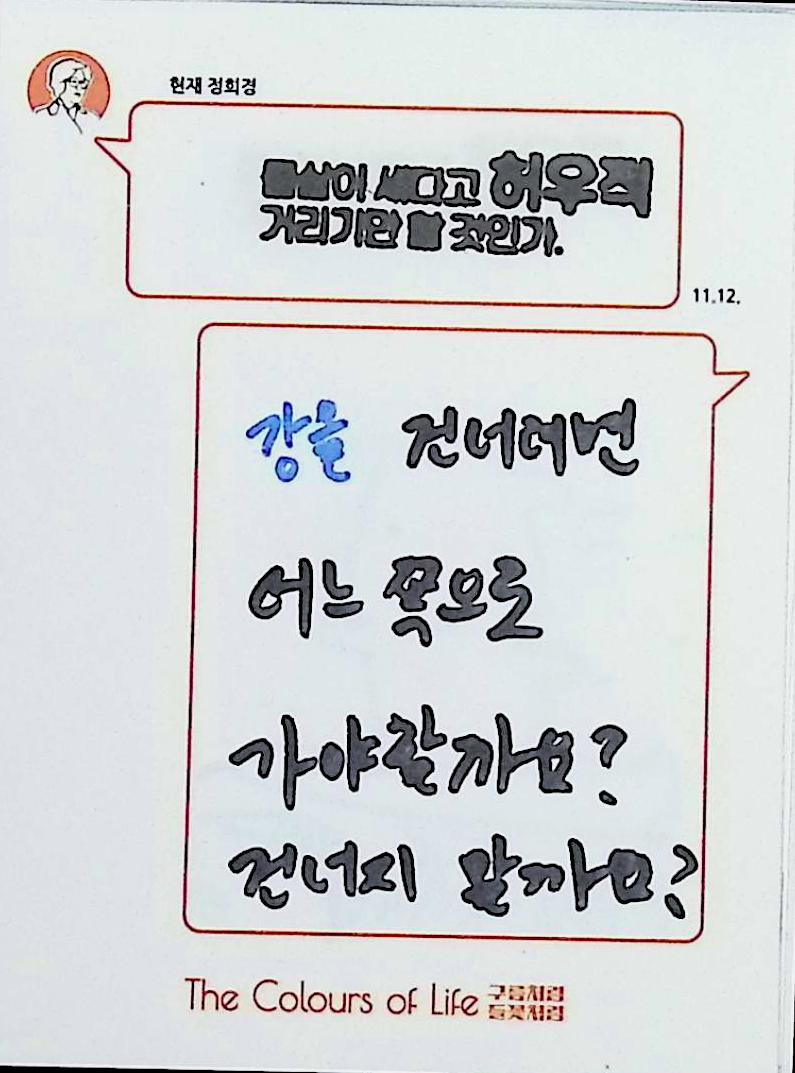 현재 정희경
물살이 세다고 허우적
거리기만 할 것인가.
11.12.
강을 건너려면
어느 쪽으로
가야할까요?
건너지 말까요?
The Colours of Life 구름처럼
들꽃처럼